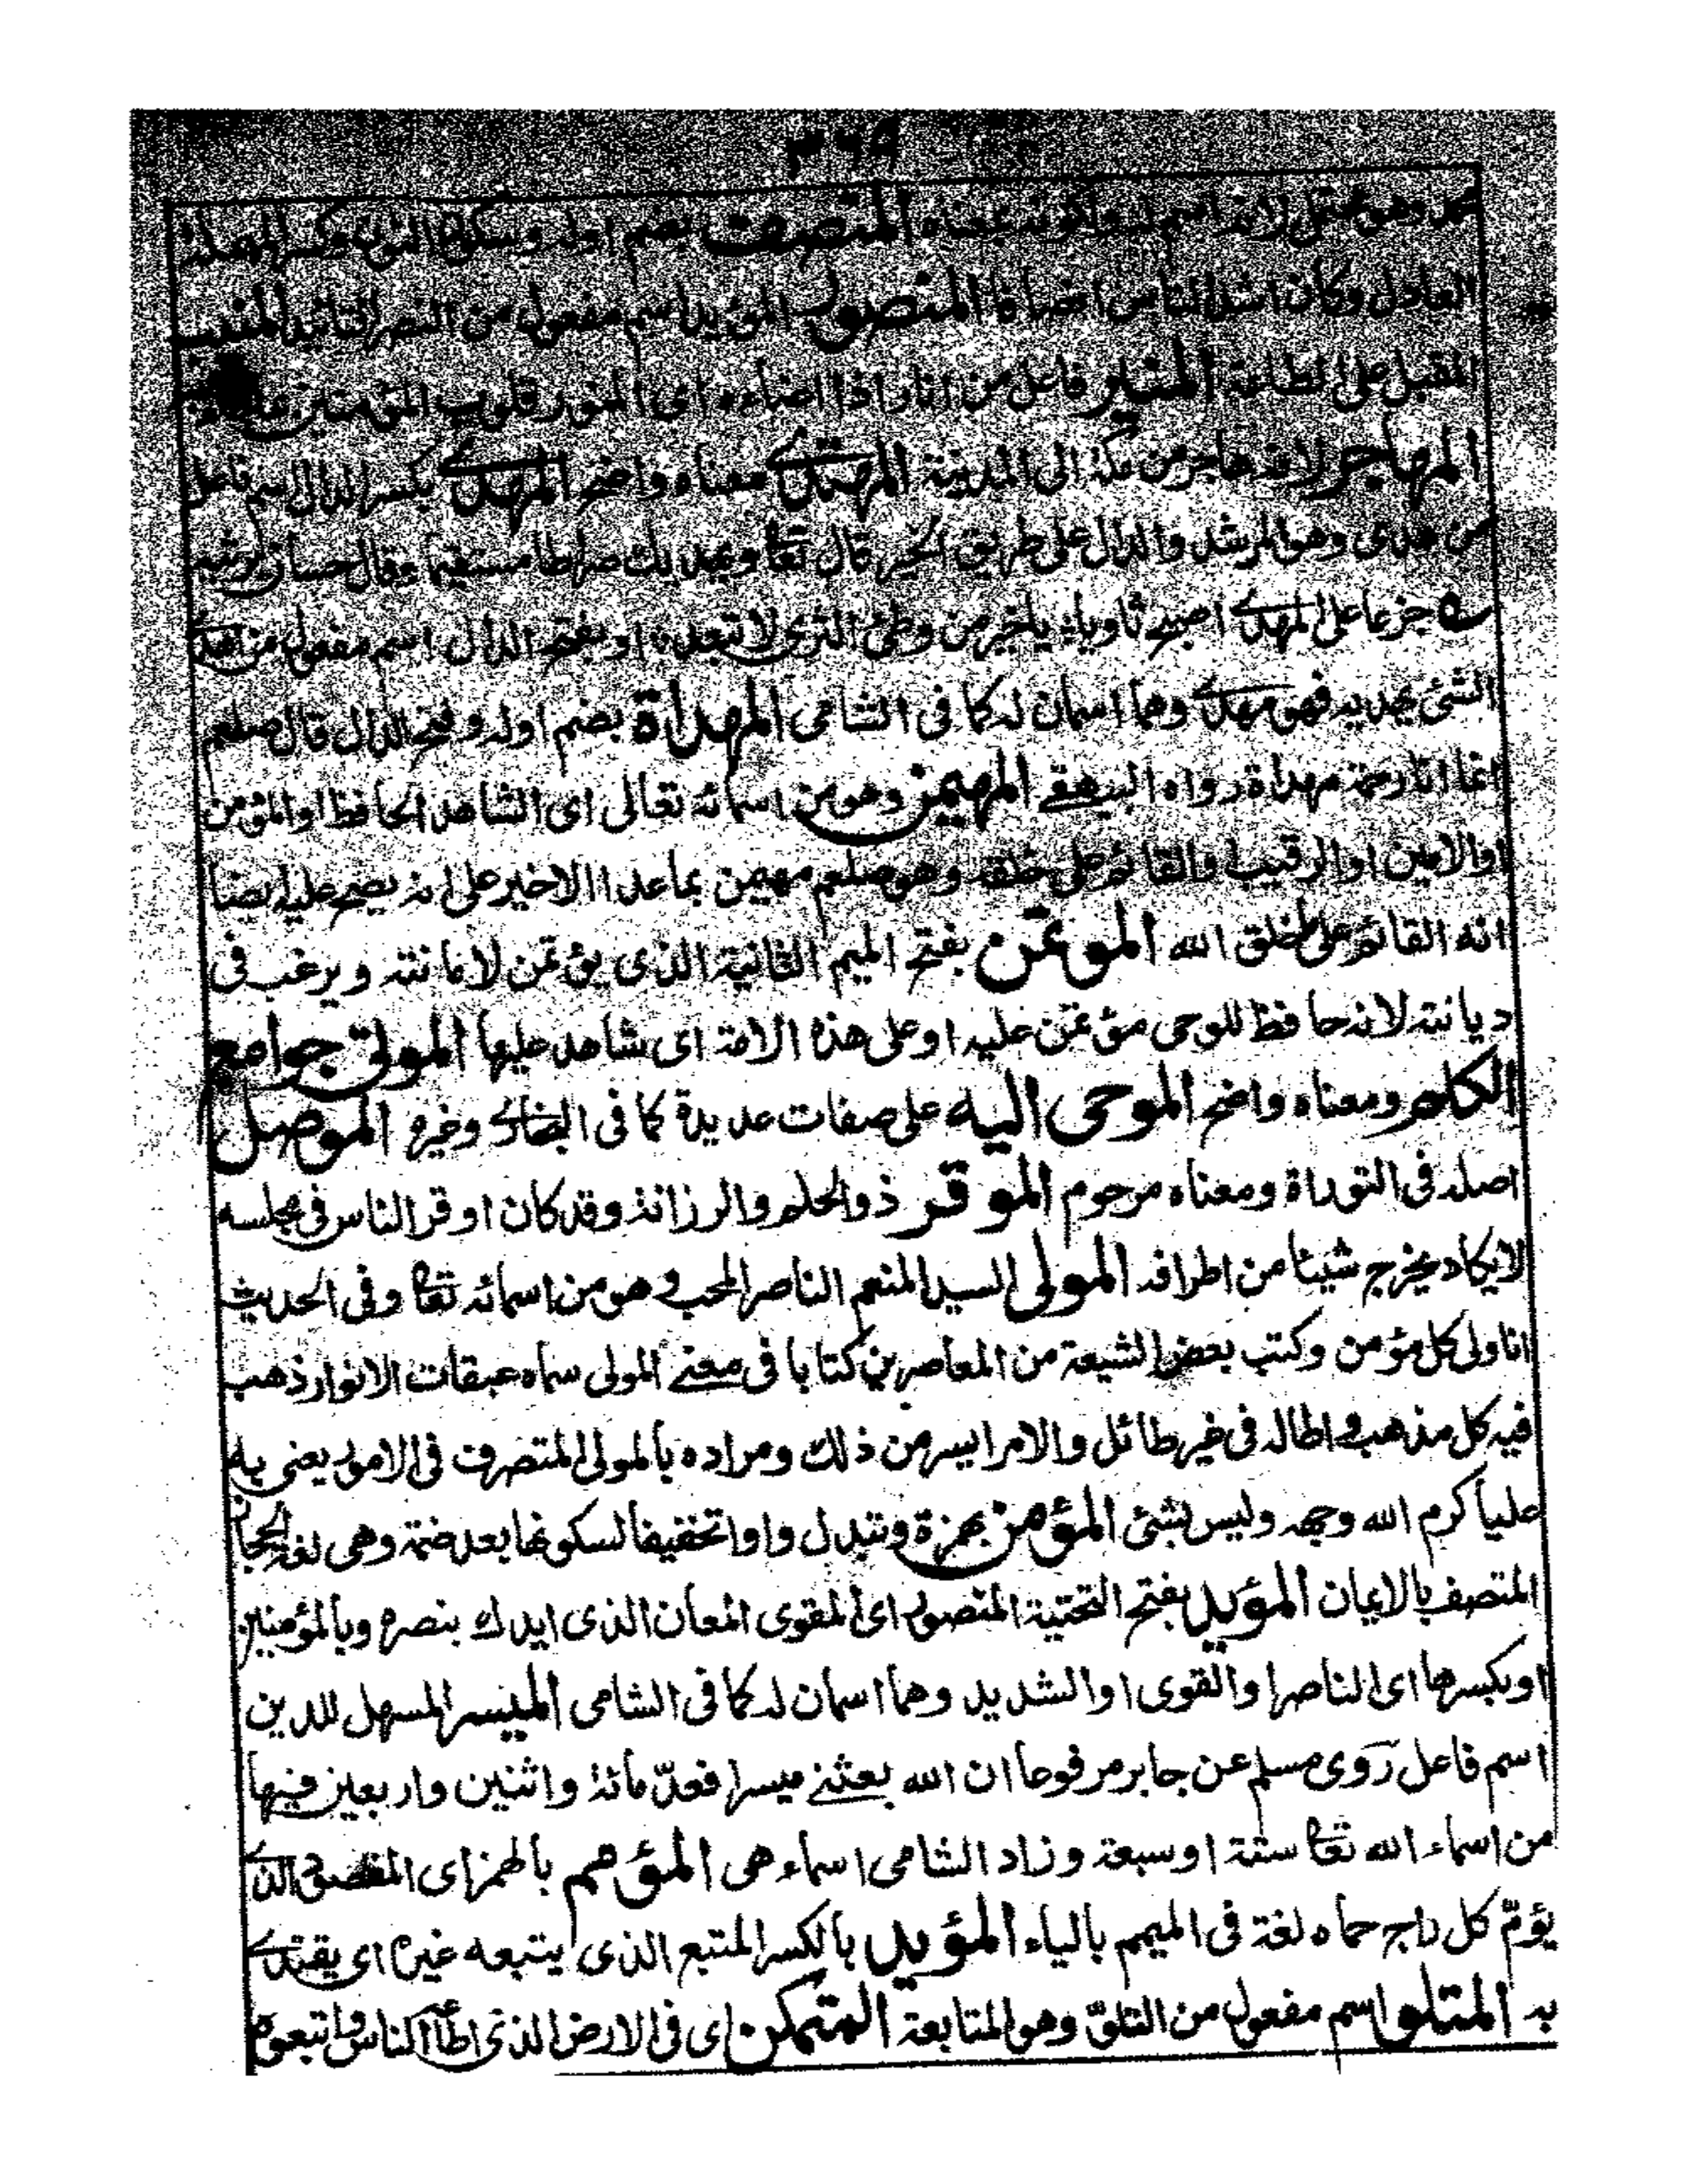 ٣٦٩
محمد وهو محتمل لانه اسم له بمعناه المنصف بضم اوله وسكون النون وكسر المهملة
العادل وكان اشد الناس انصافا المنصور المؤيد اسم مفعول من النصر التائيد المنيب
المقبل على الطاعة المنير فاعل من انار اذا اضاءه اى المنور قلوب المؤمنين
المهاجر لانه هاجر من مكة الى المدينة المهتدى معناه واضح المهدى بكسر الدال اسم فاعل
من هدى وهو المرشد والدال على طريق الخير قال تعا ويهديك صراطا مستقيما وقال حسان يرثيه
ے جزعا على المهدى اصبح ثاويا، ياخير من وطئ الثرى لا تبعد، او بفتح الدال اسم مفعول من اهدى
الشئ يهديه فهو مهدى وهما اسمان له كما فى الشامى المهداة بضم اوله وفتح الدال قال صلعم
انما انا رحمة مهداة رواه البيهقى المهيمن وهو من اسمائه تعالى اى الشاهد الحافظ او المؤمن
او الامين او الرقيب او القائم على خلقه وهو صلعم مهيمن بماعدا الاخير على انه يصح عليه ايضا
انه القائم على خلق الله الموتمن بفتح الميم الثانية الذى يؤتمن لامانته ويرغب فى
ديانته لانه حافظ للوحى مؤتمن عليه او على هذه الامة اى شاهد عليها الموتى جوامع
الكلم ومعناه واضح الموحى اليه على صفات عديدة كما فى البخارى وغيره الموصل
اصله فى التوراة ومعناه مرحوم الموقر ذو الحلم والرزانة وقد كان اوقر الناس فى مجلسه
لايكاد يخرج شيئا من اطرافه المولى السيد المنعم الناصر المحب وهو من اسمائه تعا وفى الحديث
انا ولى كل مؤمن وكتب بعض الشيعة من المعاصرين كتابا فى معنى المولى سماه عبقات الانوار ذهب
فيه كل مذهب واطال فى غير طائل والامر ايسر من ذلك ومراده بالمولى المتصرف فى الامور يعنى به
عليا كرم الله وجهه وليس بشئ المؤمن بهمزة وتبدل واوا تخفيفا لسكونها بعد ضمة وهى لغة الحجاز
المتصف بالايمان المؤيد بفتح التحتية المنصور اى المقوى المعان الذى ايدك بنصره وبالمؤمنين
او بكسرها اى الناصر او القوى او الشديد وهما اسمان له كما فى الشامى الميسر المسهل للدين
اسم فاعل روى مسلم عن جابر مرفوعا ان الله بعثنى ميسرا فعدّ مائة واثنين واربعين فيها
من اسماء الله تعا ستة او سبعة وزاد الشامى اسماء هى المؤمم بالهمز اى المقصود الذى
يؤمّ كل راج حماه لغة فى الميمم بالياء المؤيد بالكسر المتبع الذى يتبعه غيره اى يقتدى
به المتلو اسم مفعول من التلوّ وهو المتابعة المتمكن اى فى الارض الذى اطاعه الناس واتبعوه